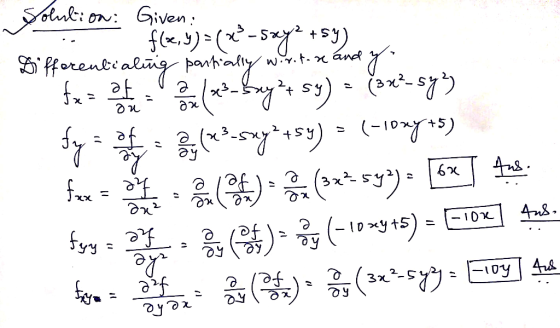 Solution: Given:
f(x,y) = (x³ - 5xy² + 5y)
Differentiating partially w.r.t. x and y.
fx = ∂f/∂x = ∂/∂x (x³ - 5xy² + 5y) = (3x² - 5y²)
fy = ∂f/∂y = ∂/∂y (x³ - 5xy² + 5y) = (-10xy + 5)
fxx = ∂²f/∂x² = ∂/∂x (∂f/∂x) = ∂/∂x (3x² - 5y²) = 6x Ans.
fyy = ∂²f/∂y² = ∂/∂y (∂f/∂y) = ∂/∂y (-10xy + 5) = -10x Ans.
fxy = ∂²f/∂y∂x = ∂/∂y (∂f/∂x) = ∂/∂y (3x² - 5y²) = -10y Ans